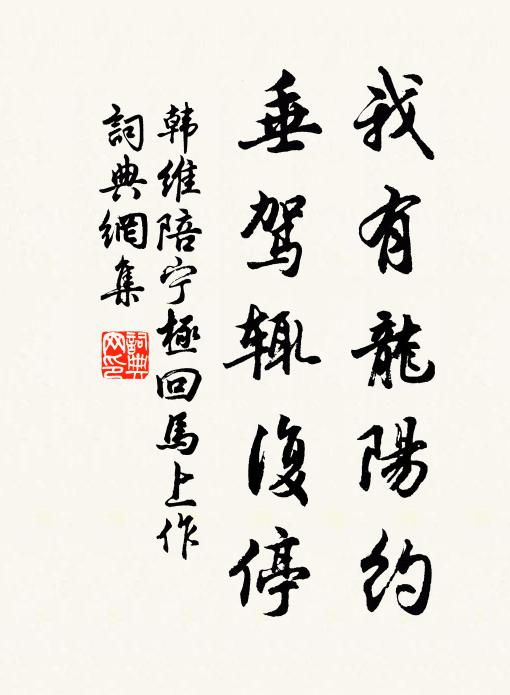 我有龍陽約
垂駕辄復停
韩維陪宁極回馬上作
詞典網集
詞典網印